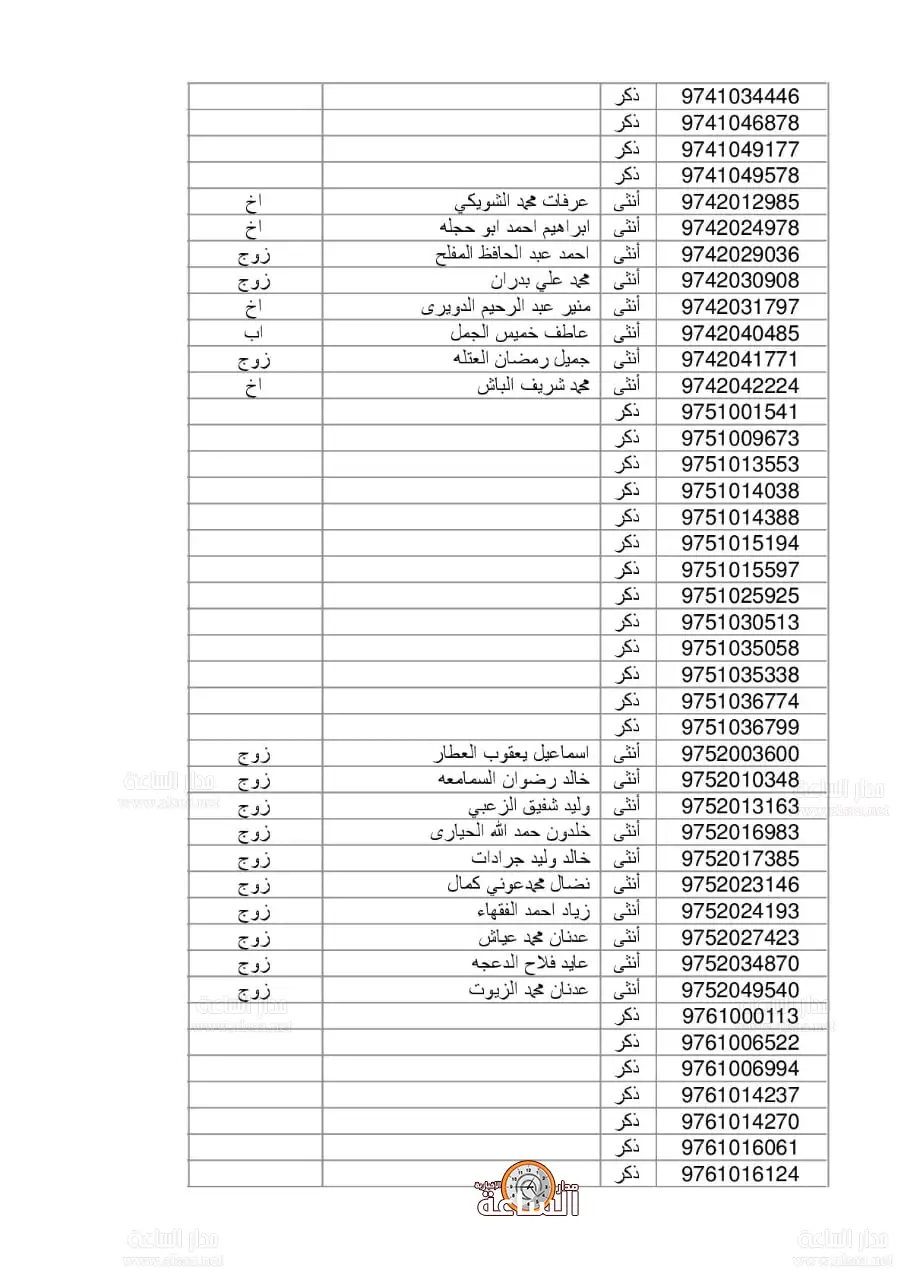 9741034446 ذكر
9741046878 ذكر
9741049177 ذكر
9741049578 ذكر
9742012985 أنثى عرفات محمد الشويكي اخ
9742024978 أنثى ابراهيم احمد ابو حجله اخ
9742029036 أنثى احمد عبد الحافظ المفلح زوج
9742030908 أنثى محمد علي بدران زوج
9742031797 أنثى منير عبد الرحيم الدويرى اخ
9742040485 أنثى عاطف خميس الجمل اب
9742041771 أنثى جميل رمضان العتله زوج
9742042224 أنثى محمد شريف الباش اخ
9751001541 ذكر
9751009673 ذكر
9751013553 ذكر
9751014038 ذكر
9751014388 ذكر
9751015194 ذكر
9751015597 ذكر
9751025925 ذكر
9751030513 ذكر
9751035058 ذكر
9751035338 ذكر
9751036774 ذكر
9751036799 ذكر
9752003600 أنثى اسماعيل يعقوب العطار زوج
9752010348 أنثى خالد رضوان السمامعه زوج
9752013163 أنثى وليد شفيق الزعبي زوج
9752016983 أنثى خلدون حمد الله الحيارى زوج
9752017385 أنثى خالد وليد جرادات زوج
9752023146 أنثى نضال محمدعوني كمال زوج
9752024193 أنثى زياد احمد الفقهاء زوج
9752027423 أنثى عدنان محمد عياش زوج
9752034870 أنثى عايد فلاح الدعجه زوج
9752049540 أنثى عدنان محمد الزيوت زوج
9761000113 ذكر
9761006522 ذكر
9761006994 ذكر
9761014237 ذكر
9761014270 ذكر
9761016061 ذكر
9761016124 ذكر
مدار الإخبارية
الساعة